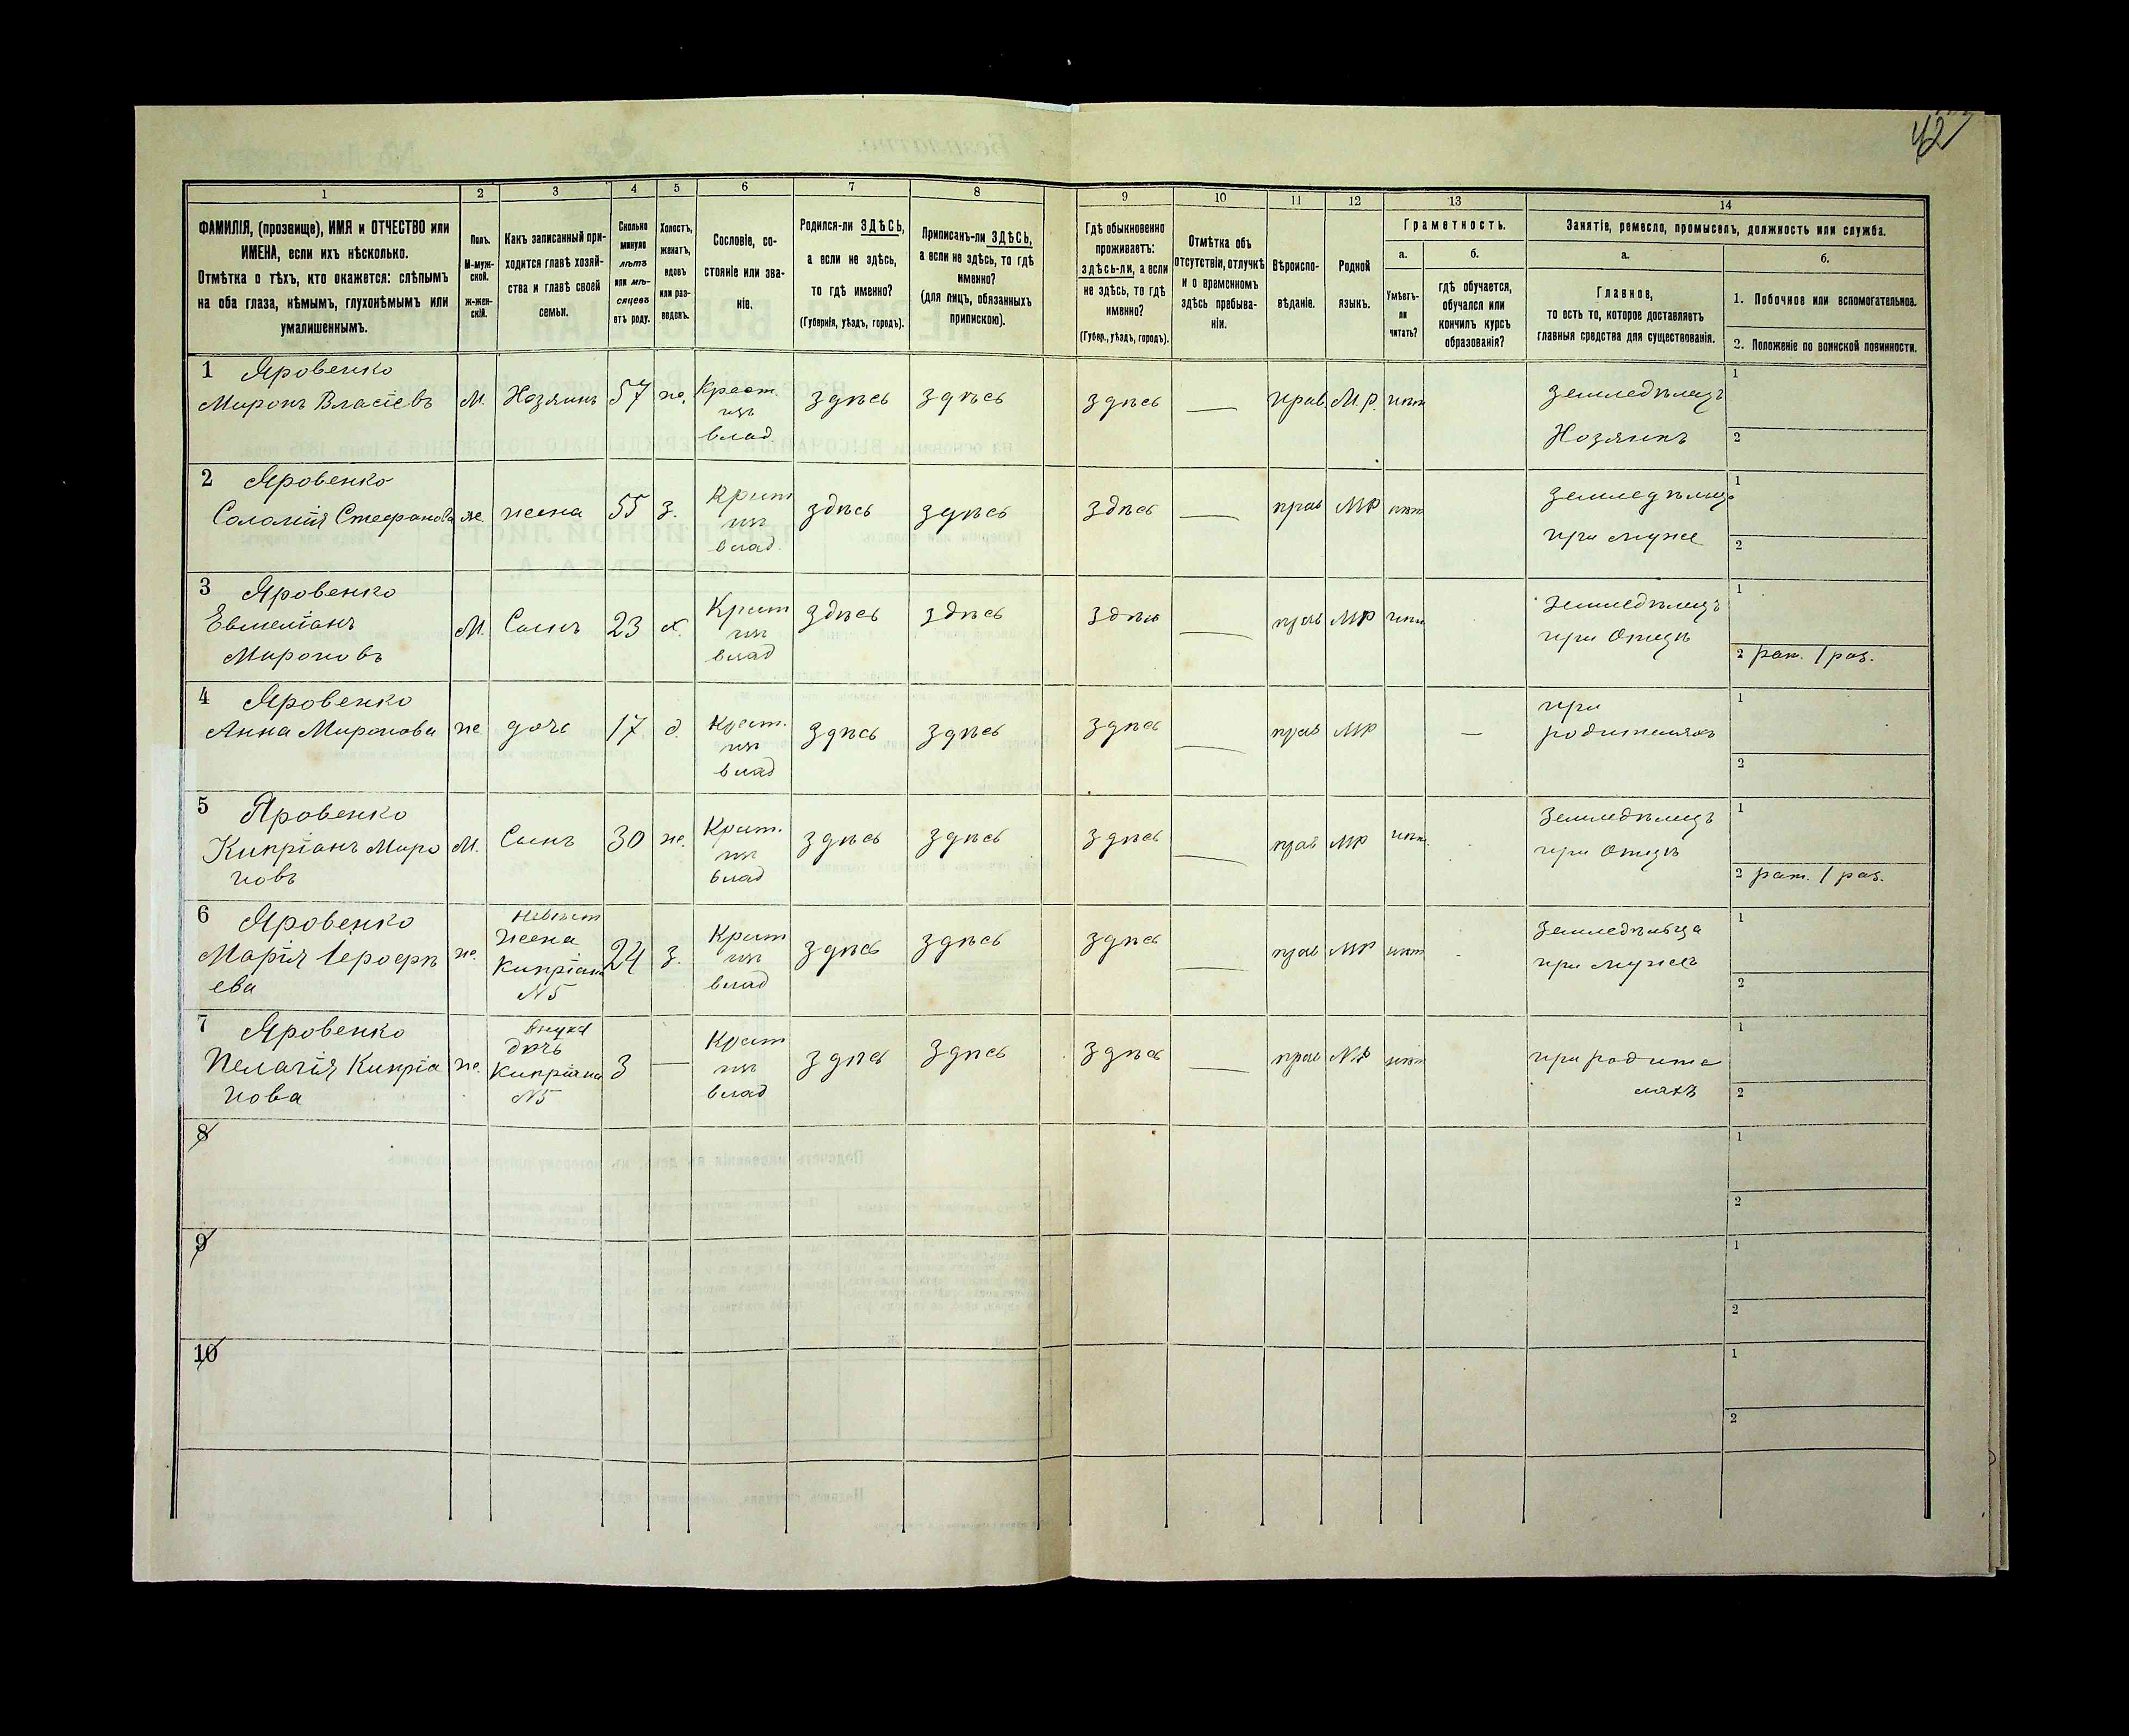 42
1 2 3 4 5 6 7 8 9 10 11 12 13 14
ФАМИЛІЯ, (прозвище), ИМЯ и ОТЧЕСТВО или
ИМЕНА, если ихъ нѣсколько.
Отмѣтка о тѣхъ, кто окажется: слѣпымъ
на оба глаза, нѣмымъ, глухонѣмымъ или
умалишеннымъ.
Полъ.
М-муж-
ской.
ж-жен-
скій.
Какъ записанный при-
ходится главѣ хозяй-
ства и главѣ своей
семьи.
Сколько
минуло
лѣтъ
или мѣ-
сяцевъ
отъ роду.
Холостъ,
женатъ,
вдовъ
или раз-
веденъ.
Сословіе, со-
стояніе или зва-
ніе.
Родился-ли ЗДѢСЬ,
а если не здѣсь,
то гдѣ именно?
(Губернія, уѣздъ, городъ).
Приписанъ-ли ЗДѢСЬ,
а если не здѣсь, то гдѣ
именно?
(для лицъ, обязанныхъ
припискою).
Гдѣ обыкновенно
проживаетъ:
здѣсь-ли, а если
не здѣсь, то гдѣ
именно?
(Губер., уѣздъ, городъ).
Отмѣтка объ
отсутствіи, отлучкѣ
и о временномъ
здѣсь пребыва-
ніи.
Вѣроиспо-
вѣданіе.
Родной
языкъ.
Граметность.
а.
Умѣетъ-
ли
читать?
б.
гдѣ обучается,
обучался или
кончилъ курсъ
образованія?
Занятіе, ремесло, промыселъ, должность или служба.
а.
Главное,
то есть то, которое доставляетъ
главныя средства для существованія.
б.
1. Побочное или вспомогательное.
2. Положеніе по воинской повинности.
1 Яровенко
Миронъ Власіевъ М. Хозяинъ 57 же. Крест. здѣсь здѣсь здѣсь — прав. М.р. нѣт Земледѣлецъ 1
изъ
влад
Хозяинъ 2
2 Яровенко
Соломія Стефанова же. жена 55 з. Крист здѣсь здѣсь здѣсь — прав МР нѣт земледѣлица 1
изъ
влад.
при муже 2
3 Яровенко
Евмеліанъ
Мироновъ М. Сынъ 23 х. Крист здѣсь здѣсь здѣсь — прав МР нѣт земледѣлецъ 1
изъ
влад
при Отцѣ 2 рат. 1 раз.
4 Яровенко
Анна Миронова же дочь 17 д. Крест. здѣсь здѣсь здѣсь — прав МР — при 1
изъ
влад
родителяхъ 2
5 Яровенко
Кипріанъ Миро
новъ М. Сынъ 30 же. Крист. здѣсь здѣсь здѣсь — прав МР нѣт. Земледѣлецъ 1
изъ
влад
при Отцѣ 2 рат. 1 раз.
6 Яровенко
Марія Ероѳѣ
ева же. невѣст
Жена
Кипріана
N5 24 з. Крист здѣсь здѣсь здѣсь — прав МР нѣт Земледѣльца 1
изъ
влад
при мужѣ 2
7 Яровенко
Пелагія Кипріа
нова же. Внука
дочь
Кипріана
N5 3 — Крист здѣсь здѣсь здѣсь — прав МР нѣт при родите 1
изъ
влад
ляхъ 2
8 1
2
9 1
2
10 1
2